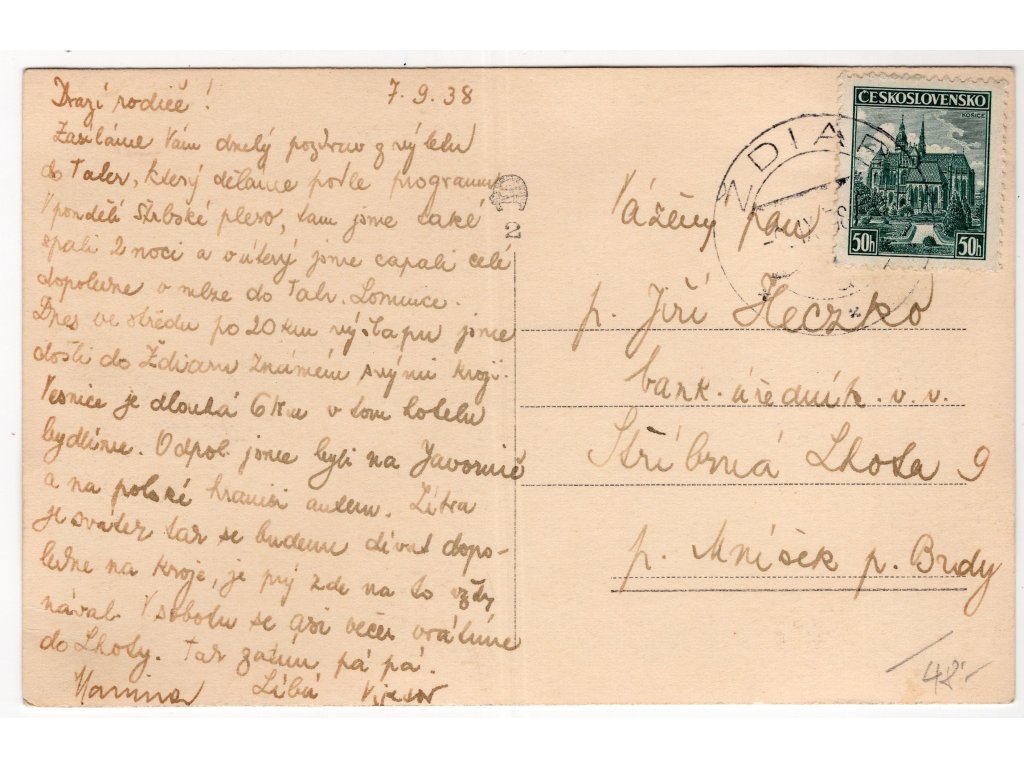 Drazí rodiče! 7.9.38
Zasíláme Vám druhý pozdrav z výletu
do Tater, který děláme podle programu
V pondělí Štrbské pleso, tam jsme také
spali 2 noci a v úterý jsme capali celé
dopoledne v mlze do Tatr. Lomnice.
Dnes ve středu po 20 km výšlapu jsme
došli do Ždiaru známém svými kroji.
Vesnice je dlouhá 6 km v tom hotelu
bydlíme. Odpol. jsme byli na Javorině
a na polské hranici autem. Zítra
je svátek tak se budeme dívat dopo-
ledne na kroje, je prý zde na to vždy
nával. V sobotu se asi večer vrátíme
do Lhoty. Tak zatím pá pá.
Líba
ČESKOSLOVENSKO
KOŠICE
50h 50h
ŽDIAR
2
Vážený pan
p. Jiří Heczko
bank. úředník. v. v.
Stříbrná Lhota 9
p. Mníšek p. Brdy
48.-